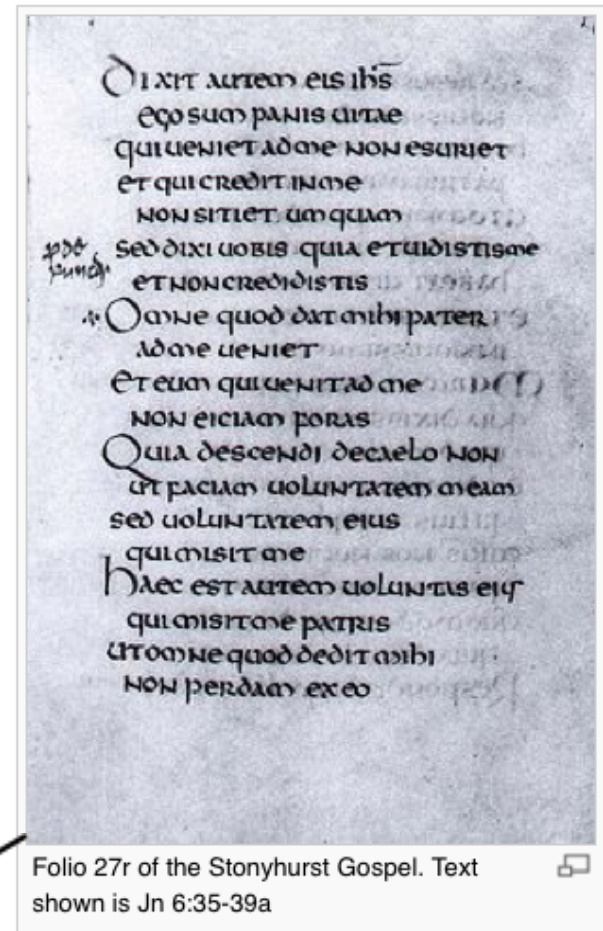 Dixit autem eis ihs̄
ego sum panis uitae
qui ueniet ad me non esuriet
et qui credit in me
non sitiet umquam
sed dixi uobis quia et uidistis me
et non credidistis
Omne quod dat mihi pater
ad me ueniet
Et eum qui uenit ad me
non eiciam foras
Quia descendi de caelo non
ut faciam uoluntatem meam
sed uoluntatem eius
qui misit me
haec est autem uoluntas eius
qui misit me patris
ut omne quod dedit mihi
non perdam ex eo
Folio 27r of the Stonyhurst Gospel. Text
shown is Jn 6:35-39a